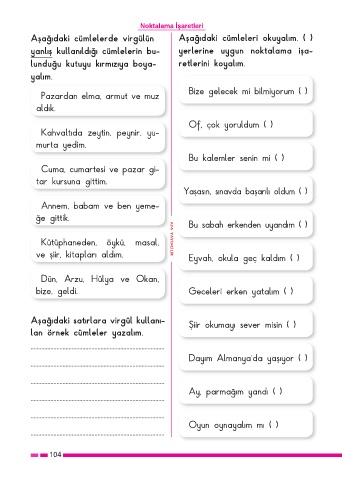 Noktalama İşaretleri
Aşağıdaki cümlelerde virgülün
yanlış kullanıldığı cümlelerin bu-
lunduğu kutuyu kırmızıya boya-
yalım.
Pazardan elma, armut ve muz
aldık.
Kahvaltıda zeytin, peynir, yu-
murta yedim.
Cuma, cumartesi ve pazar gi-
tar kursuna gittim.
Annem, babam ve ben yeme-
ğe gittik.
Kütüphaneden, öykü, masal,
ve şiir, kitapları aldım.
Dün, Arzu, Hülya ve Okan,
bize, geldi.
Aşağıdaki satırlara virgül kullanı-
lan örnek cümleler yazalım.
Aşağıdaki cümleleri okuyalım. ( )
yerlerine uygun noktalama işa-
retlerini koyalım.
Bize gelecek mi bilmiyorum ( )
Of, çok yoruldum ( )
Bu kalemler senin mi ( )
Yaşasın, sınavda başarılı oldum ( )
Bu sabah erkenden uyandım ( )
Eyvah, okula geç kaldım ( )
Geceleri erken yatalım ( )
Şiir okumayı sever misin ( )
Dayım Almanya'da yaşıyor ( )
Ay, parmağım yandı ( )
Oyun oynayalım mı ( )
104